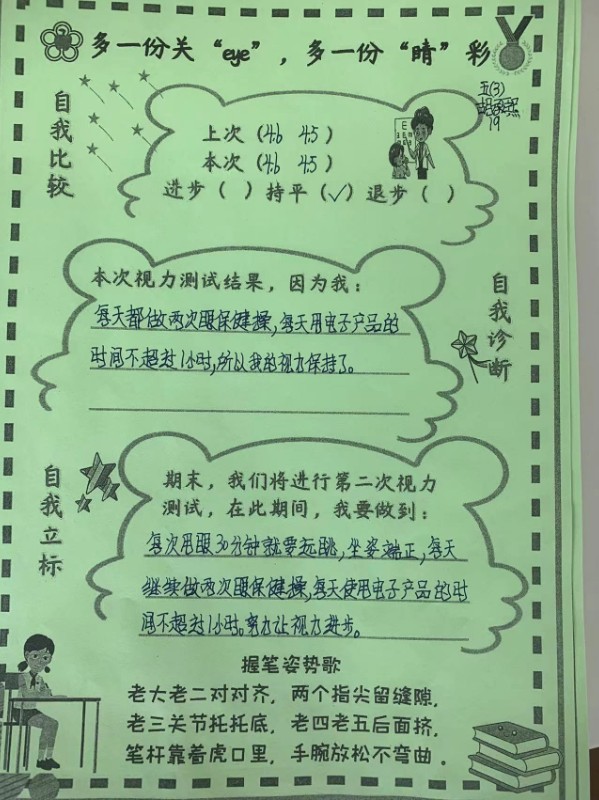 多一份关“eye”，多一份“睛”彩
五(3)
19
自我比较
上次（4.6 4.5）
本次（4.6 4.5）
进步（ ）持平（✓）退步（ ）
自我诊断
本次视力测试结果，因为我：
每天都做两次眼保健操，每天用电子产品的
时间不超过1小时，所以我的视力保持了。
自我立标
期末，我们将进行第二次视力
测试，在此期间，我要做到：
每次用眼30分钟就要远眺，坐姿端正，每天
继续做两次眼保健操，每天使用电子产品的时
间不超过1小时。努力让视力进步。
握笔姿势歌
老大老二对对齐，两个指尖留缝隙，
老三关节托托底，老四老五后面挤，
笔杆靠着虎口里，手腕放松不弯曲。